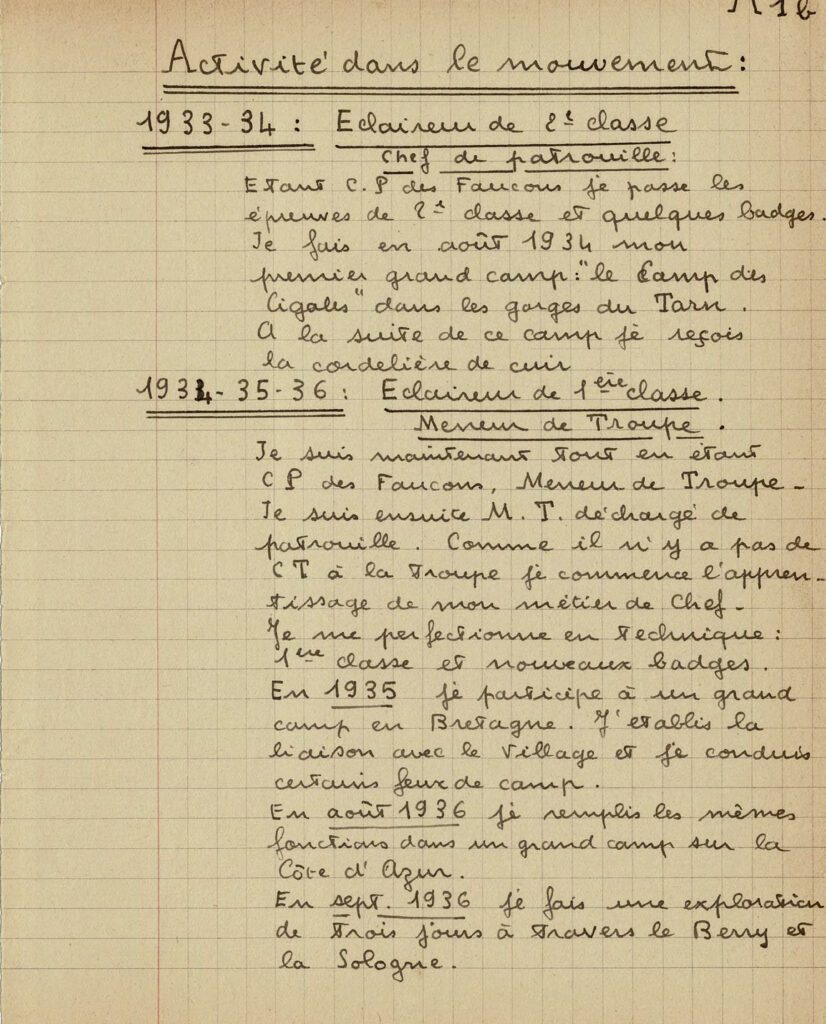 Activité dans le mouvement :
1933-34 : Eclaireur de 2e classe
Chef de patrouille :
Etant C.P des Faucons je passe les
épreuves de 2e classe et quelques badges.
Je fais en août 1934 mon
premier grand camp : "le Camp des
Cigales" dans les gorges du Tarn.
A la suite de ce camp je reçois
la cordelière de cuir
1934-35-36 : Eclaireur de 1ère classe.
Meneur de Troupe.
Je suis maintenant tout en étant
CP des Faucons, Meneur de Troupe -
Je suis ensuite M. T. déchargé de
patrouille. Comme il n'y a pas de
CT à la troupe je commence l'appren-
tissage de mon métier de Chef -
Je me perfectionne en technique :
1ère classe et nouveaux badges.
En 1935 je participe à un grand
camp en Bretagne. J'etablis la
liaison avec le village et je conduis
certains feux de camp.
En août 1936 je remplis les mêmes
fonctions dans un grand camp sur la
Côte d'Azur.
En sept. 1936 je fais une exploration
de trois jours à travers le Berry et
la Sologne.